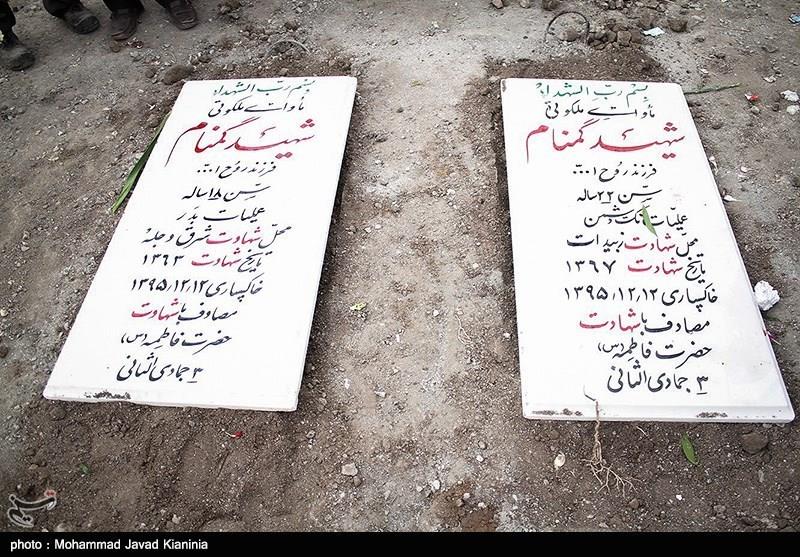 بسم ربّ الشهداء
مأوای ملکوتی
شهید گمنام
فرزند روح ا...
سِن ۲۲ ساله
عملیّات تک دشمن
محلّ شهادت زبیدات
تاریخ شهادت ۱۳۶۷
خاکسپاری ۱۳۹۵/۱۲/۱۲
مصادف با شهادت
حضرت فاطمه (س)
۳ جمادی الثانی
بسم ربّ الشهداء
مأوای ملکوتی
شهید گمنام
فرزند روح ا...
سِن ۱۸ ساله
عملیات بدر
محلّ شهادت شرق دجله
تاریخ شهادت ۱۳۶۳
خاکسپاری ۱۳۹۵/۱۲/۱۲
مصادف با شهادت
حضرت فاطمه (س)
۳ جمادی الثانی
تسنیم
photo : Mohammad Javad Kianinia